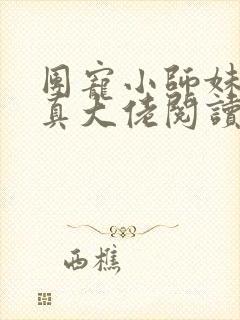 团寵小師妹
真大佬閱讀
西樵